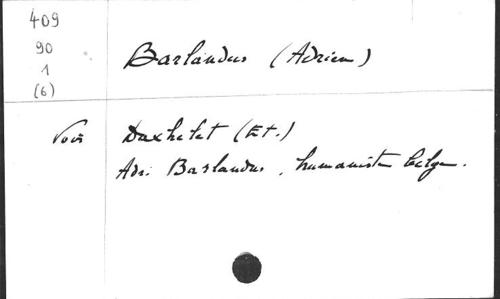 409
90
1
(6)
Barlandus (Adrien)
Voir Daxhelet (Et.)
Adr. Barlandus, humaniste belge.